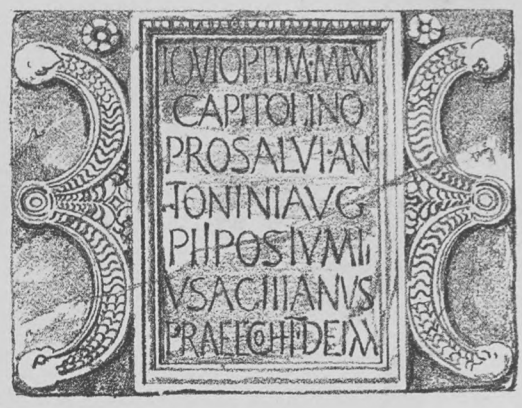 IOVIOPTIM·MAXI
CAPITOLINO
PROSALVT·AN
TONINIAVG
PIIPOSTVMI
VSACILIANVS
PRAEFCOHIDELM